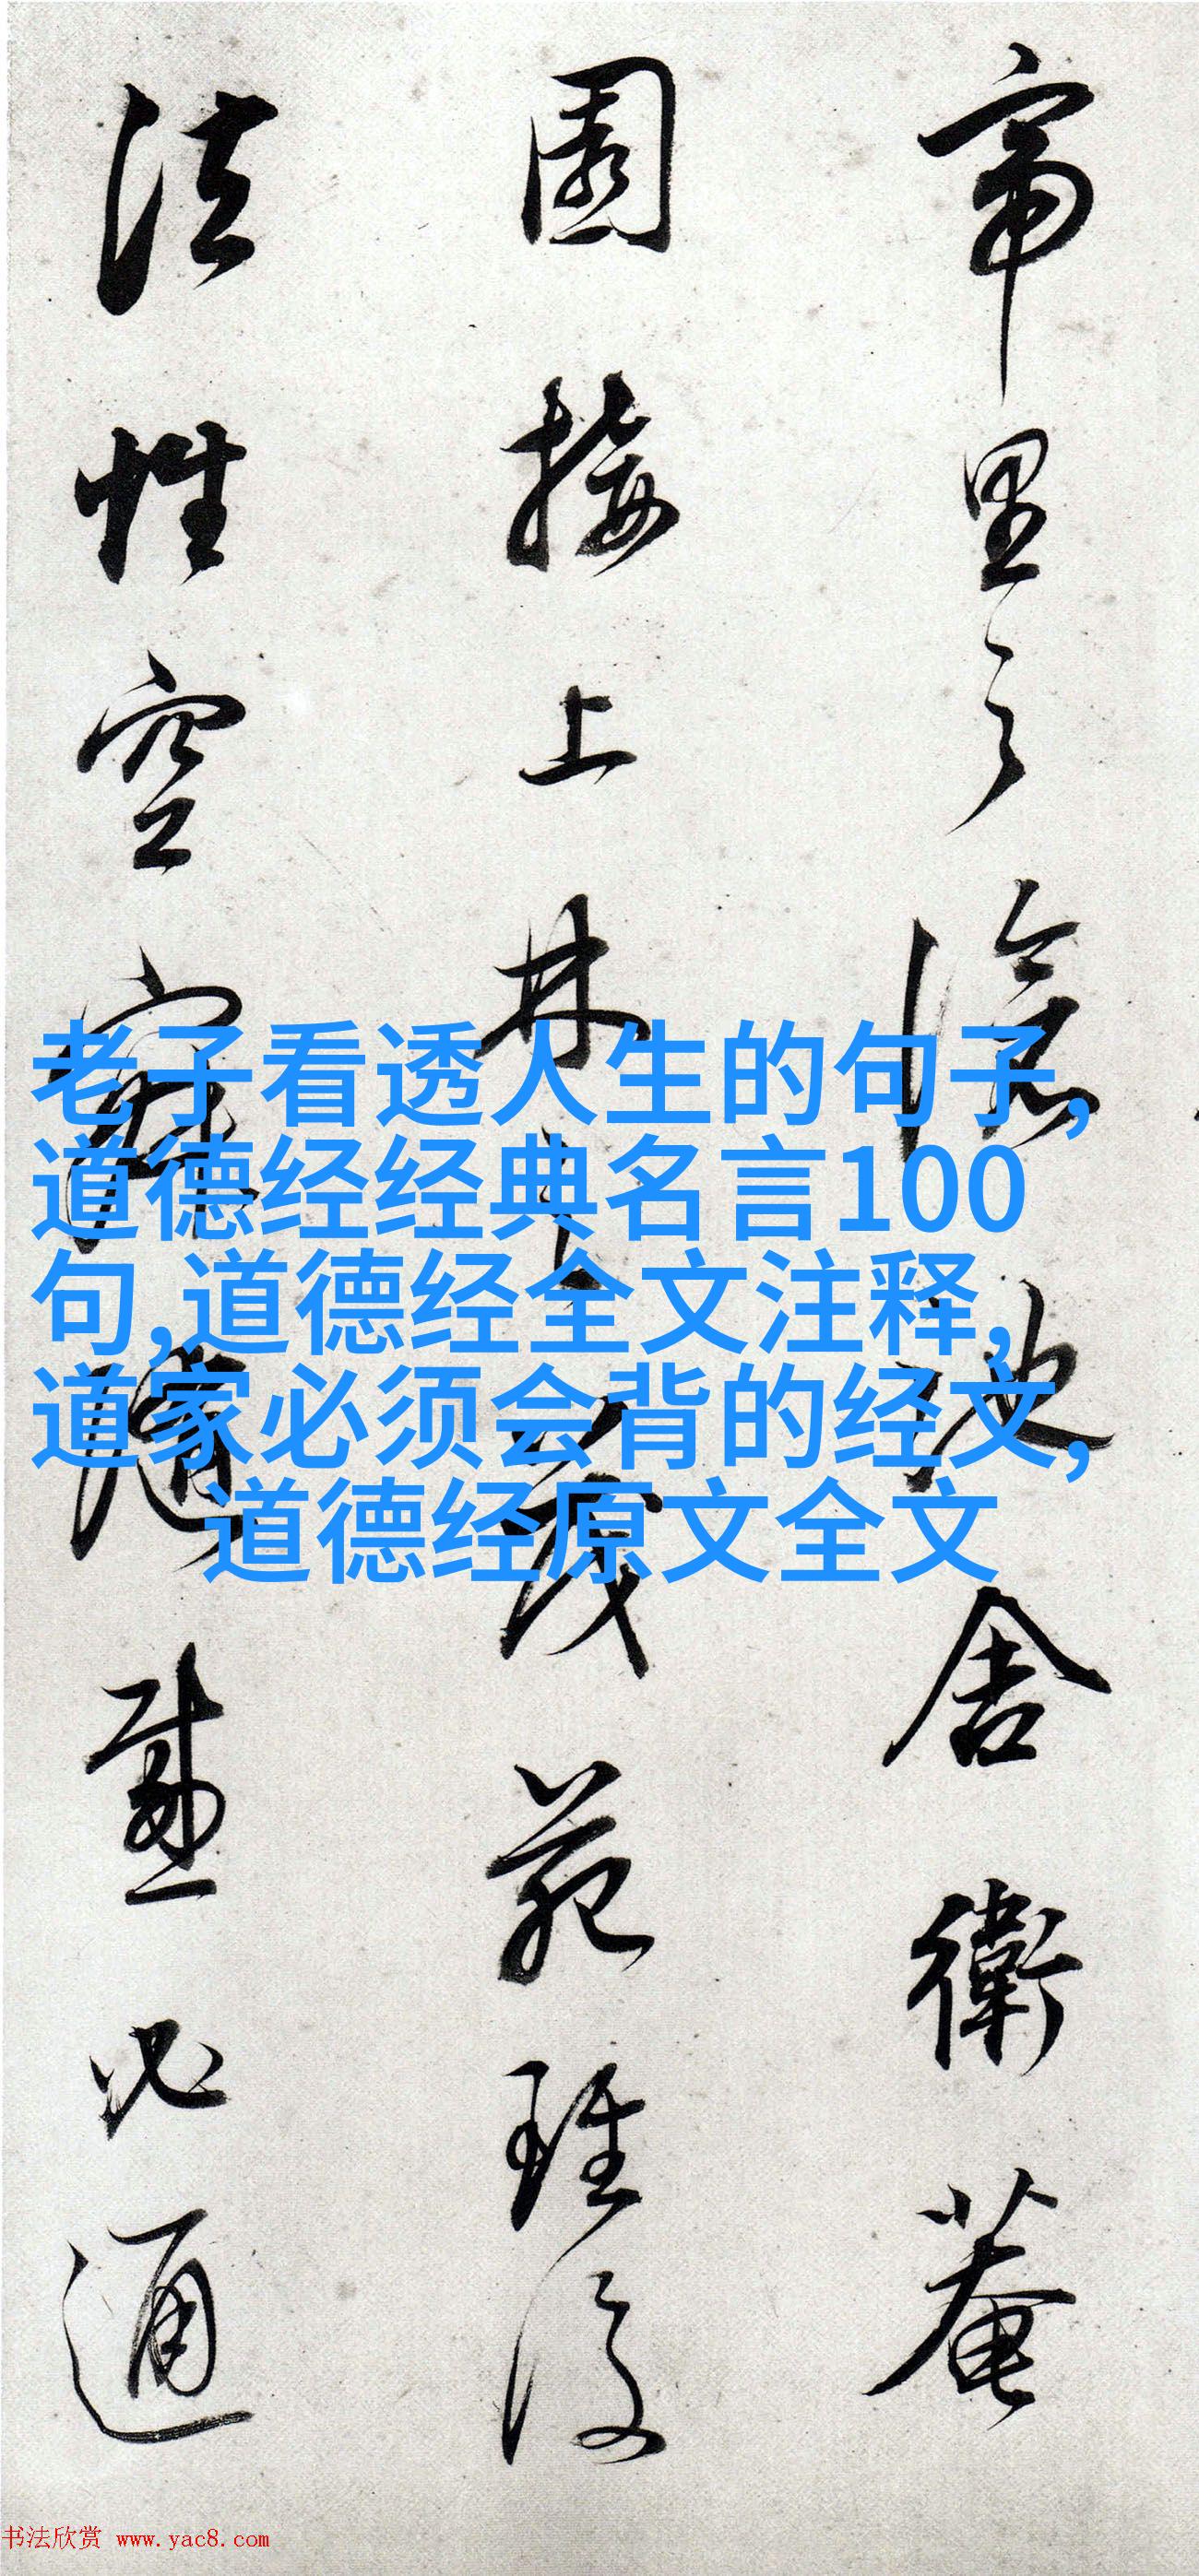 帝里之滄池舍衛菴
園接上林之茂苑雖復
法性空寂隨感必通
老子看透人生的句子,
道德经经典名言100
句,道德经全文注释,
道家必须会背的经文,
道德经原文全文
书法欣赏 www.yac8.com